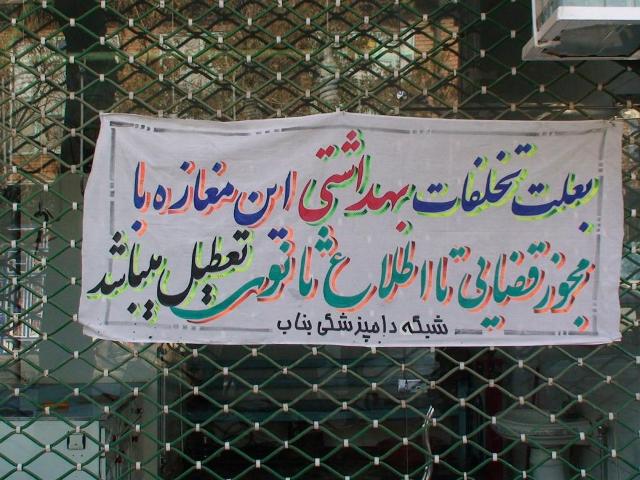 بعلت تخلفات بهداشتی این مغازه با
مجوز قضایی تا اطلاع ثانوی تعطیل میباشد
شبکه دامپزشکی بناب